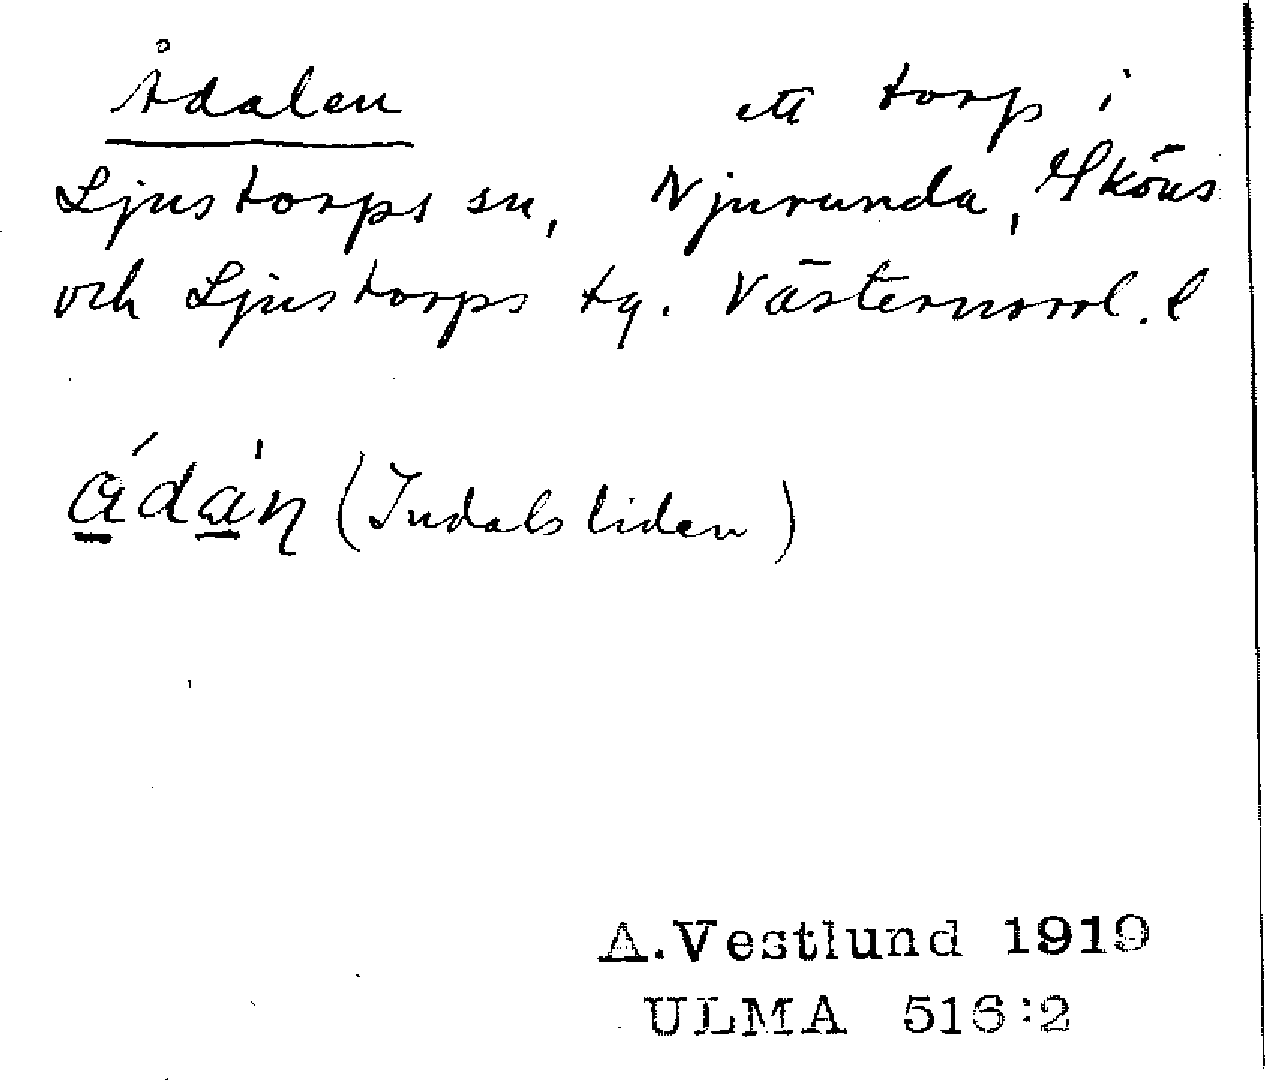 Ådalen ett torp i
Ljustorps sn, Njurunda, Sköns
och Ljustorps tg. Västernorrl. l
ádàn (Indalsliden)
A.Vestlund 1919
ULMA 516:2